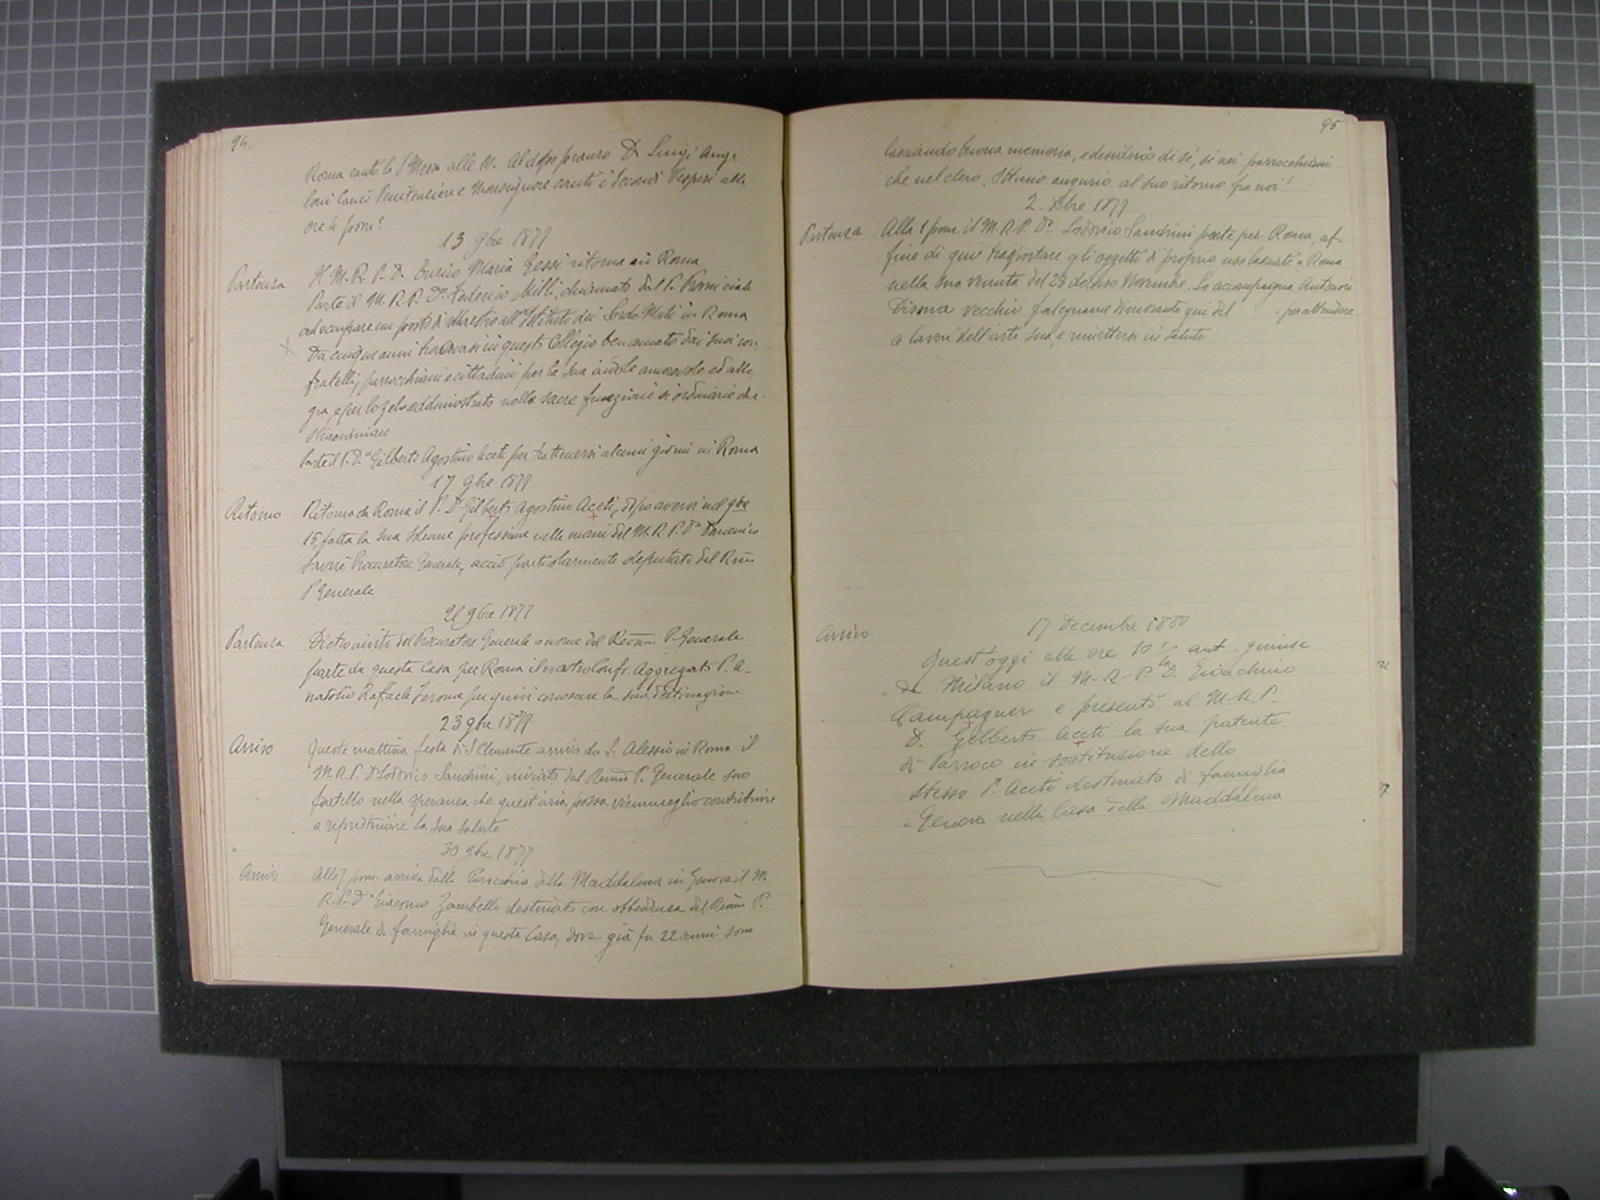 94.
Roma cantò la S Messa alle 10. Al dopo pranzo D. Luigi Ange-
loni Canco Penitenziere e Monsignore cantò i Secondi Vesperi alle
ore 4 pom:
13 9bre 1877
Partenza Il M. R. P. D. Enrico Maria Gessi ritorna in Roma
Parte il M. R. P. Dn Federico Milli, chiamato dal P. Provinciale
ad occupare un posto di Maestro all'Istituto dei Sordo Muti in Roma
Da cinque anni trovavasi in questo Collegio ben amato dai suoi con-
fratelli, parrocchiani e cittadini per la sua indole amorevole ed alle-
gra, e per lo zelo addimostrato nelle sacre funzioni sì ordinarie che
straordinarie
Parte il P. Dn Gilberto Agostino Aceti per trattenersi alcuni giorni in Roma
17 9bre 1877
Ritorno Ritorna da Roma il P. Dn Gilberto Agostino Aceti, dopo avervi nel 9bre
15 fatta la sua solenne professione nelle mani del M. R. P. Dn Domenico
Savarè Procuratore Generale, acciò particolarmente deputato dal Rmo
P Generale
21 9bre 1877
Partenza Dietro invito del Procuratore Generale a nome del Revmo P. Generale
parte da questa Casa per Roma il nostro Confr. Aggregato P. A-
natolio Rafaele Gerome per quivi conoscere la sua destinazione
23 9bre 1877
Arrivo Questa mattina festa di S Clemente arrivò da S. Alessio in Roma il
M. R. P. D Lodovico Sandrini, inviato dal Revmo P. Generale suo
fratello nella speranza che quest'aria possa viemmeglio contribuire
a ripristinare la sua salute
30 9bre 1877
Arrivo Alle 7 pom. arriva dalla Parocchia della Maddalena in Genova il M.
R. P. Dn Giacomo Zambelli destinato con obbedienza del Revmo P.
Generale di famiglia in questa Casa, dove già fu 22 anni sono
95
lasciando buona memoria, e desiderio di sè, sì nei parrocchiani
che nel clero. Ottimo augurio al suo ritorno fra noi!
2. Xbre 1877
Partenza Alla 1 pom. il M. R. P. Dn Lodovico Sandrini parte per Roma, af-
fine di qui trasportare gli oggetti di proprio uso lasciati a Roma
nella sua venuta del 23 decorso Novembre. Lo accompagna
Disma vecchio falegname dimorante qui del per attendere
a lavori dell'arte sua, e rimettersi in salute
17 Decembre 1880
Arrivo Quest'oggi alle ore 10 ½ ant. giunse
da Milano il M. R. P. D. Gioachino
Campagner e presentò al M. R. P.
D. Gilberto Aceti la sua patente
di Parroco in sostituzione dello
stesso P. Aceti destinato di famiglia
a Genova nella Casa della Maddalena